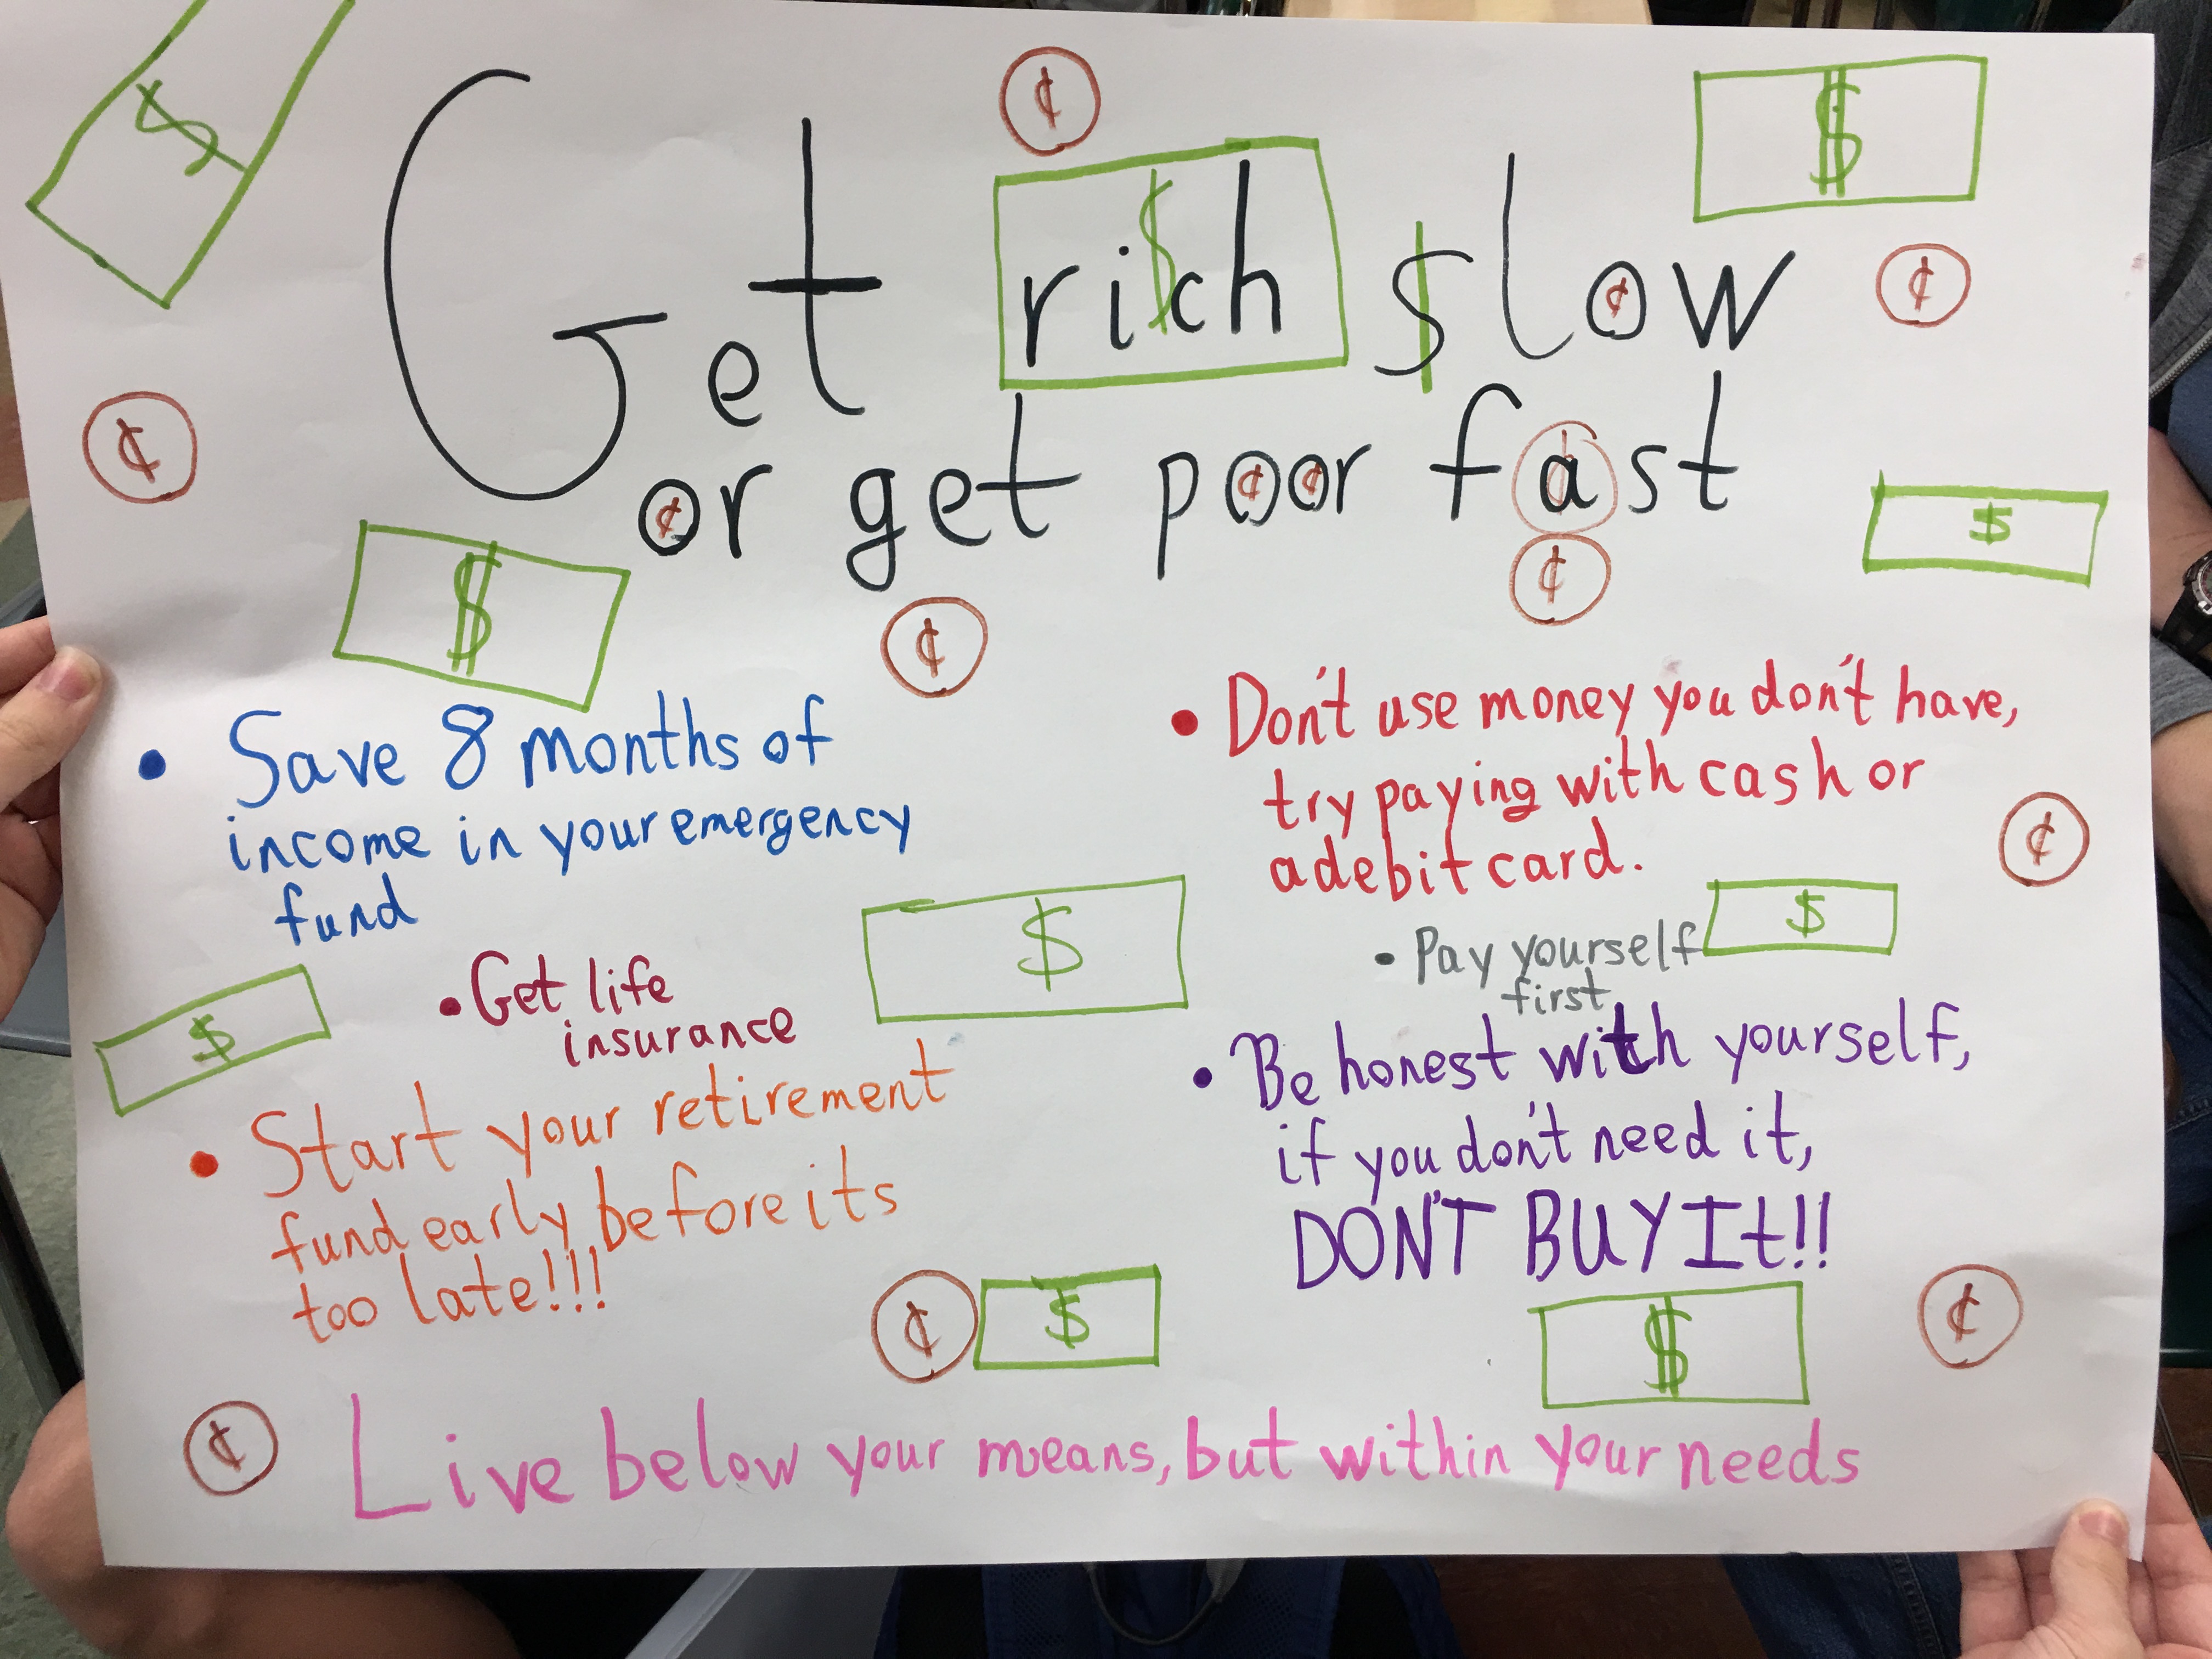 Get rich $low
or get poor fast
• Save 8 months of
income in your emergency
fund
• Get life
insurance
• Start your retirement
fund early before its
too late!!!
• Don't use money you don't have,
try paying with cash or
a debit card.
• Pay yourself
first
• Be honest with yourself,
if you don't need it,
DON'T BUY It!!
Live below your means, but within your needs